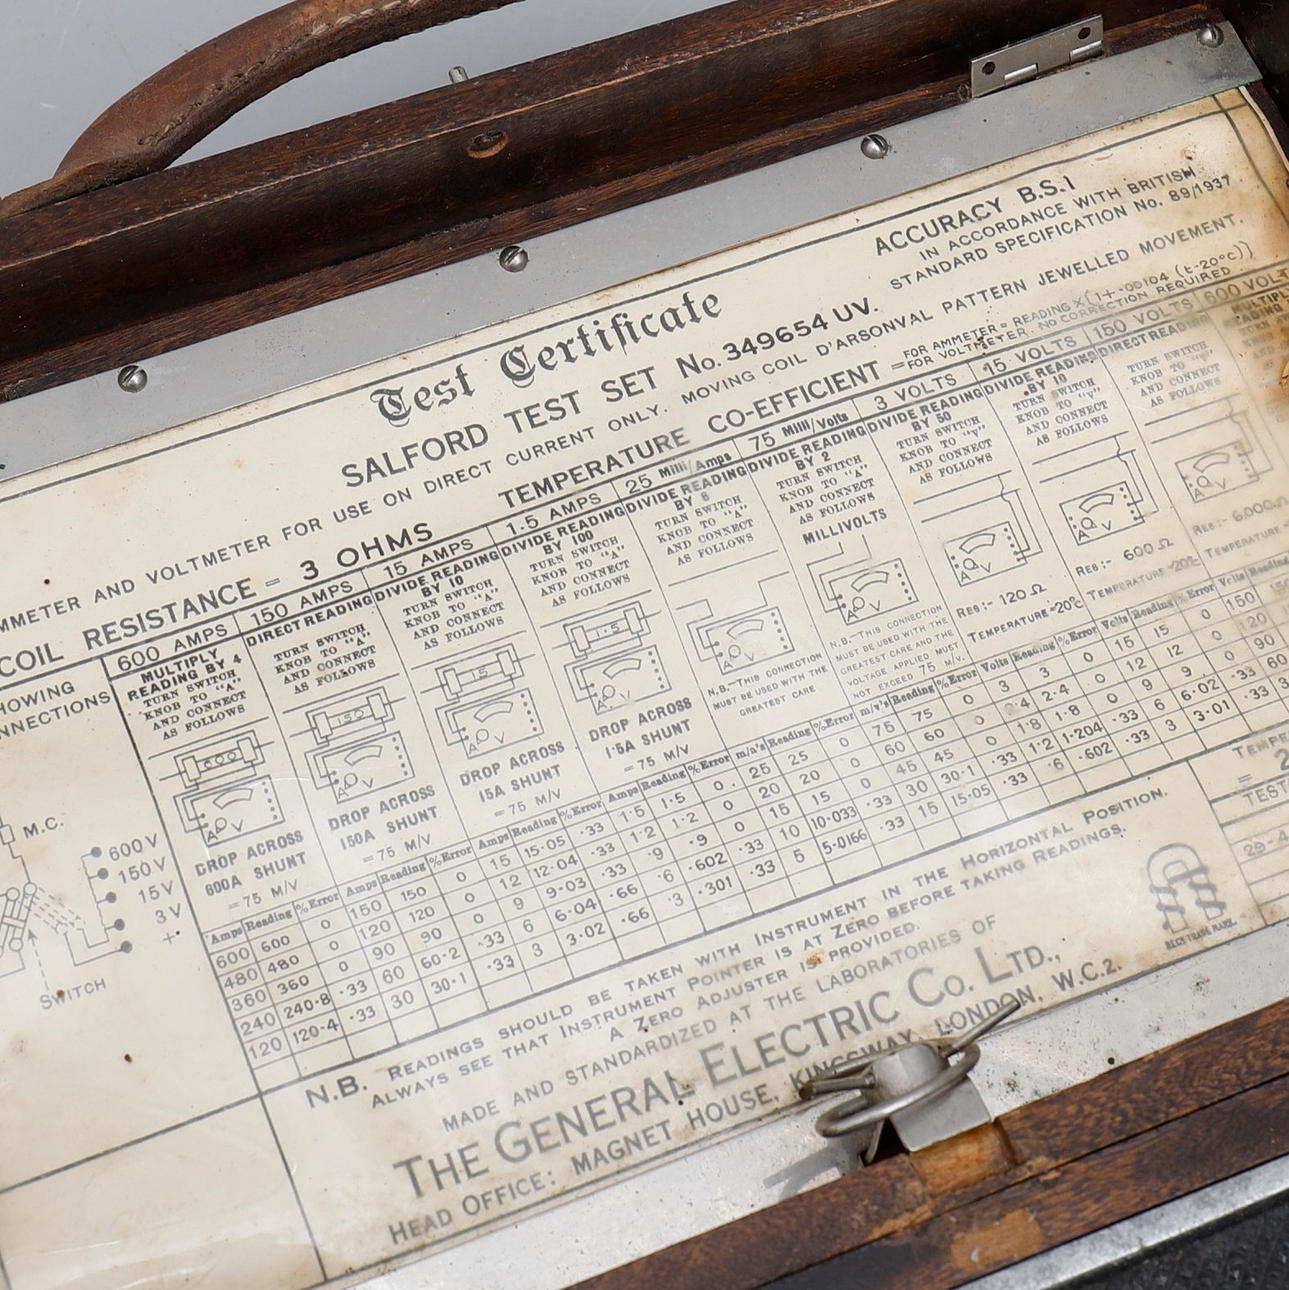 Test Certificate
ACCURACY B.S.1
IN ACCORDANCE WITH BRITISH
STANDARD SPECIFICATION No. 89/1937
SALFORD TEST SET No. 349654 UV.
AMMETER AND VOLTMETER FOR USE ON DIRECT CURRENT ONLY. MOVING COIL D'ARSONVAL PATTERN JEWELLED MOVEMENT.
COIL RESISTANCE = 3 OHMS TEMPERATURE CO-EFFICIENT =
FOR AMMETER = READING × (1+.00104 (t-20°C))
FOR VOLTMETER. NO CORRECTION REQUIRED
600 AMPS
MULTIPLY
READING BY 4
TURN SWITCH
KNOB TO "A"
AND CONNECT
AS FOLLOWS
600
A V
DROP ACROSS
600A SHUNT
= 75 M/V
150 AMPS
DIRECT READING
TURN SWITCH
KNOB TO "A"
AND CONNECT
AS FOLLOWS
150
A V
DROP ACROSS
150A SHUNT
= 75 M/V
15 AMPS
DIVIDE READING
BY 10
TURN SWITCH
KNOB TO "A"
AND CONNECT
AS FOLLOWS
15
A V
DROP ACROSS
15A SHUNT
= 75 M/V
1.5 AMPS
DIVIDE READING
BY 100
TURN SWITCH
KNOB TO "A"
AND CONNECT
AS FOLLOWS
1.5
A V
DROP ACROSS
1.5A SHUNT
= 75 M/V
25 Milli/Amps
DIVIDE READING
BY 6
TURN SWITCH
KNOB TO "A"
AND CONNECT
AS FOLLOWS
A V
N.B.-THIS CONNECTION
MUST BE USED WITH THE
GREATEST CARE
75 Milli/Volts
DIVIDE READING
BY 2
TURN SWITCH
KNOB TO "A"
AND CONNECT
AS FOLLOWS
MILLIVOLTS
A V
N.B.-THIS CONNECTION
MUST BE USED WITH THE
GREATEST CARE AND THE
VOLTAGE APPLIED MUST
NOT EXCEED 75 M/V.
3 VOLTS
DIVIDE READING
BY 50
TURN SWITCH
KNOB TO "V"
AND CONNECT
AS FOLLOWS
A V
RES:- 120 Ω
TEMPERATURE-20°C
15 VOLTS
DIVIDE READING
BY 10
TURN SWITCH
KNOB TO "V"
AND CONNECT
AS FOLLOWS
A V
RES:- 600 Ω
TEMPERATURE-20°C
150 VOLTS
DIRECT READING
TURN SWITCH
KNOB TO "V"
AND CONNECT
AS FOLLOWS
A V
RES:- 6,000
TEMPERATURE
600 VOLT
Amps Reading % Error Amps Reading % Error Amps Reading % Error Amps Reading % Error m/a's Reading % Error m/v's Reading % Error Volts Reading % Error Volts Reading % Error Volts Reading
600 600 0 150 150 0 15 15.05 .33 1.5 1.5 0. 25 25 0 75 75 0 3 3 0 15 15 0 150
480 480 0 120 120 0 12 12.04 .33 1.2 1.2 0 20 20 0 60 60 0 2.4 2.4 0 12 12 0 120
360 360 0 90 90 0 9 9.03 .33 .9 .9 0 15 15 0 45 45 0 1.8 1.8 0 9 9 0 90
240 240.8 .33 60 60.2 .33 6 6.04 .66 .6 .602 .33 10 10.033 .33 30 30.1 .33 1.2 1.204 .33 6 6.02 .33 60
120 120.4 .33 30 30.1 .33 3 3.02 .66 .3 .301 .33 5 5.0166 .33 15 15.05 .33 .6 .602 .33 3 3.01 .33
HOWING
NNECTIONS
M.C.
600 V
150 V
15 V
3 V
+
SWITCH
N.B. READINGS SHOULD BE TAKEN WITH INSTRUMENT IN THE HORIZONTAL POSITION.
ALWAYS SEE THAT INSTRUMENT POINTER IS AT ZERO BEFORE TAKING READINGS.
A ZERO ADJUSTER IS PROVIDED.
MADE AND STANDARDIZED AT THE LABORATORIES OF
THE GENERAL ELECTRIC CO. LTD.,
HEAD OFFICE: MAGNET HOUSE, KINGSWAY, LONDON, W.C.2.
REG'D TRADE MARK.
TEMPE
= 2
TEST
29-4